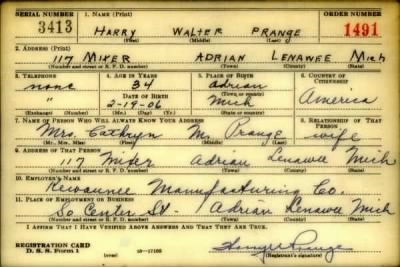 SERIAL NUMBER 1. NAME (Print) ORDER NUMBER
3413 HARRY WALTER PRANGE 1491
(First) (Middle) (Last)
2. ADDRESS (Print)
117 MIXER ADRIAN LENAWEE MICH
(Number and street or R. F. D. number) (Town) (County) (State)
3. TELEPHONE 4. AGE IN YEARS 5. PLACE OF BIRTH 6. COUNTRY OF CITIZENSHIP
none 34 Adrian
DATE OF BIRTH (Town or county)
" 2-19-06 Mich America
(Exchange) (Number) (Mo.) (Day) (Yr.) (State or country)
7. NAME OF PERSON WHO WILL ALWAYS KNOW YOUR ADDRESS 8. RELATIONSHIP OF THAT PERSON
Mrs. Cathryn M. Prange wife
(Mr., Mrs., Miss) (First) (Middle) (Last)
9. ADDRESS OF THAT PERSON
117 Mixer Adrian Lenawee Mich
(Number and street or R. F. D. number) (Town) (County) (State)
10. EMPLOYER'S NAME
Kewaunee Manufacturing Co.
11. PLACE OF EMPLOYMENT OR BUSINESS
So Center St. Adrian Lenawee Mich
(Number and street or R. F. D. number) (Town) (County) (State)
I AFFIRM THAT I HAVE VERIFIED ABOVE ANSWERS AND THAT THEY ARE TRUE.
REGISTRATION CARD
D. S. S. Form 1 (over) Prange
(Registrant's signature)